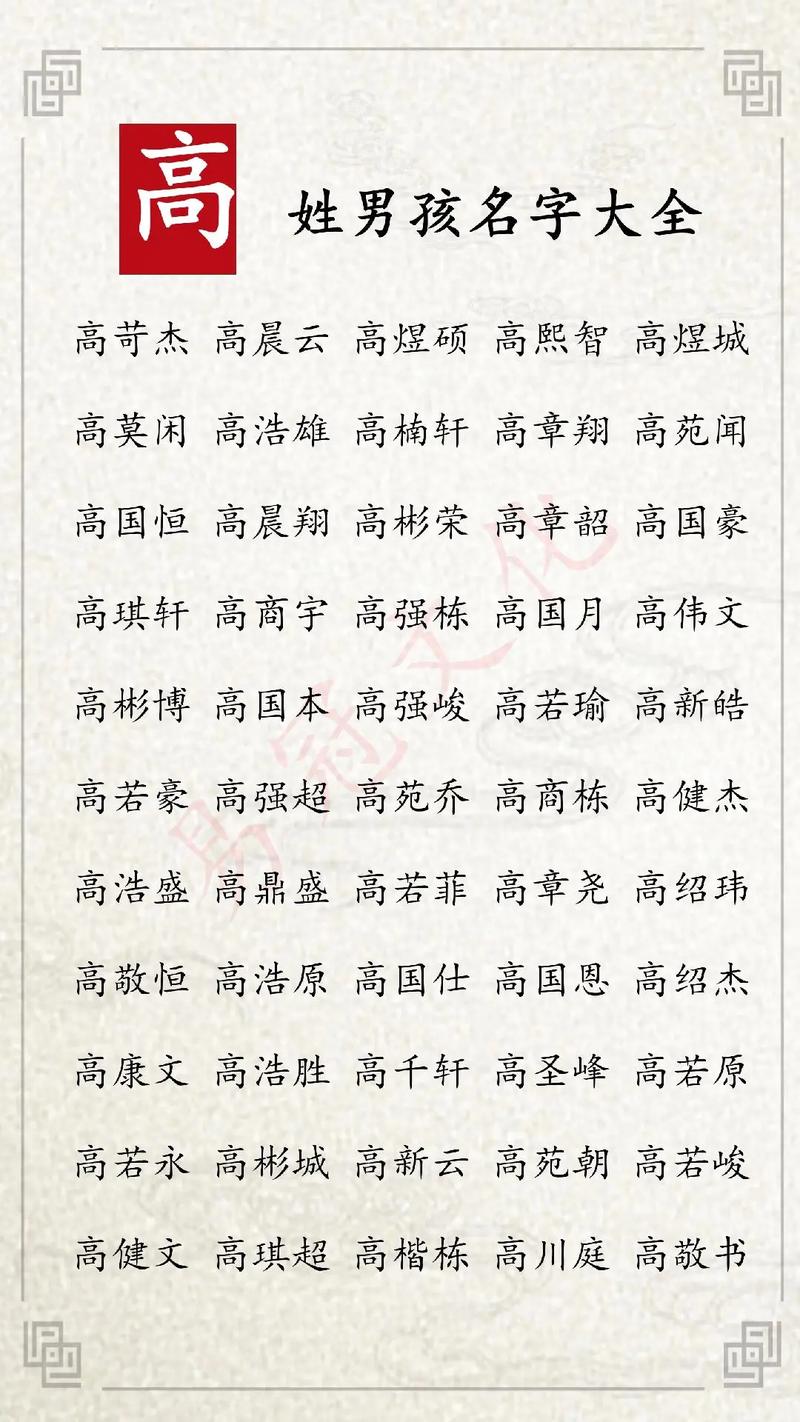 高 姓男孩名字大全
高苛杰 高晨云 高煜硕 高熙智 高煜城
高莫闲 高浩雄 高楠轩 高章翔 高苑闻
高国恒 高晨翔 高彬荣 高章韶 高国豪
高琪轩 高商宇 高强栋 高国月 高伟文
高彬博 高国本 高强峻 高若瑜 高新皓
高若豪 高强超 高苑乔 高商栋 高健杰
高浩盛 高鼎盛 高若菲 高章尧 高绍玮
高敬恒 高浩原 高国仕 高国恩 高绍杰
高康文 高浩胜 高千轩 高圣峰 高若原
高若永 高彬城 高新云 高苑朝 高若峻
高健文 高琪超 高楷栋 高川庭 高敬书